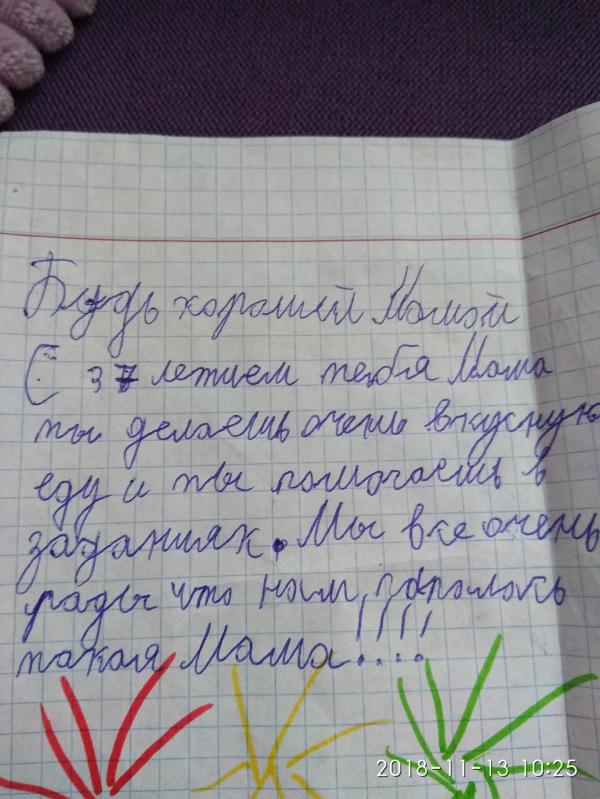 Будь хорошей Мамой
С 37 летием тебя Мама
ты делаешь очень вкусную
еду и ты помогаешь в
заданиях. Мы все очень
рады что нам
такая Мама!!!!
2018-11-13 10:25